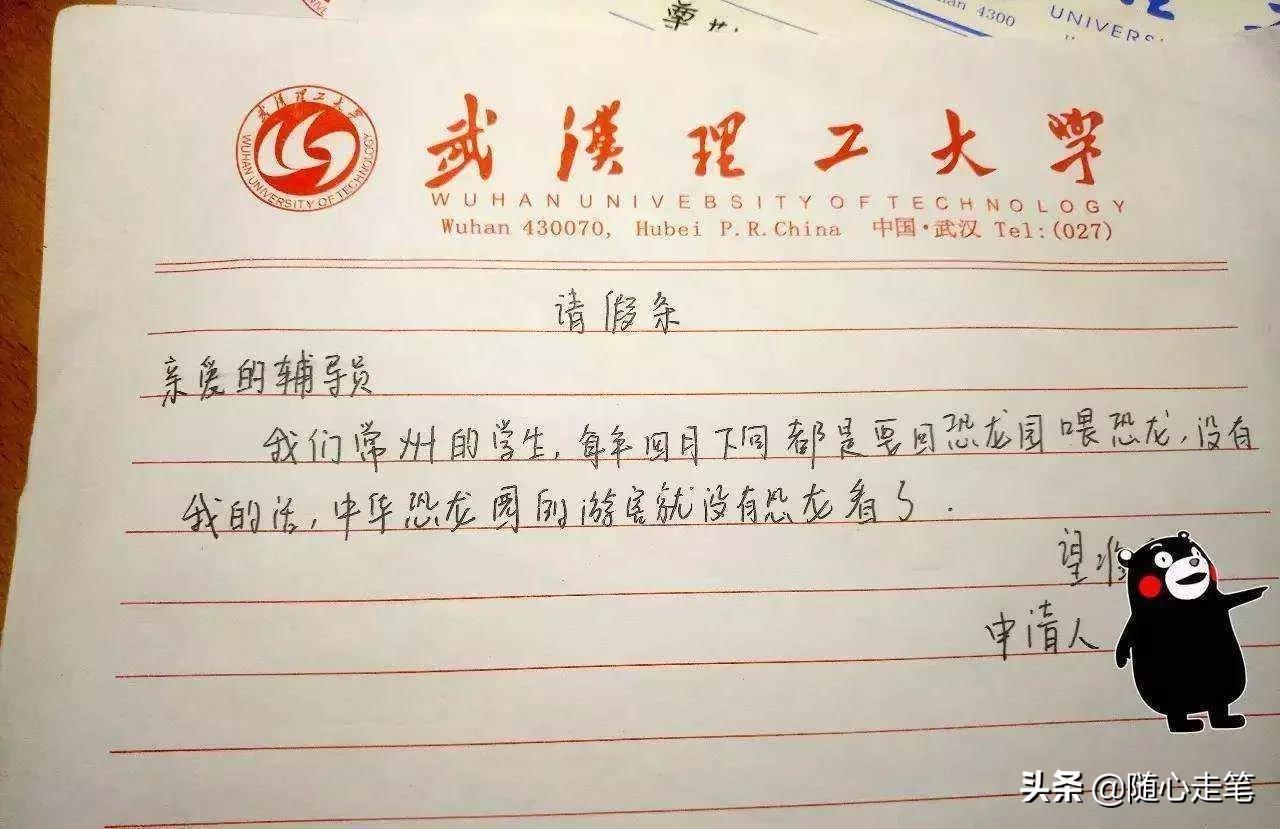 章
an 4300
UNIVERS
武汉理工大学
WUHAN UNIVERSITY OF TECHNOLOGY
武漢理工大学
WUHAN UNIVEBSITY OF TECHNOLOGY
Wuhan 430070, Hubei P.R.China 中国·武汉 Tel:(027)
请假条
亲爱的辅导员
我们常州的学生,每年四月下旬都是要回恐龙园喂恐龙,没有
我的话,中华恐龙园的游客就没有恐龙看了.
望准
申请人
头条 @随心走笔